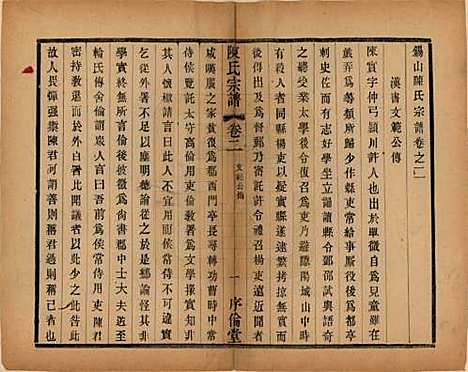 錫山陳氏宗譜卷之二
漢書文範公傳
陳寔字仲弓潁川許人也出於單微自爲兒童雖在
戲弄爲等類所歸少作縣吏常給事厮役後爲都亭
佐而有志好學坐立誦讀縣令鄧邵試與語奇
之聽受業太學後令復召爲吏乃避隱陽城山中時
有殺人者同縣楊吏以疑寔縣遂逮繫考掠無實而
後得出及爲督郵乃密託許令禮召楊吏遠近聞者
陳氏宗譜
卷二
文範公傳
一
序倫堂
咸嘆服之家貧復爲郡西門亭長尋轉功曹時中常
侍侯覽託太守高倫用吏倫教署爲文學掾寔知非
其人懷檄請見言曰此人不宜用而侯常侍不可違
寔乞從外署不足以塵明德倫從之於是鄉論怪其非
舉寔終無所言倫後被徵爲尚書郡中士大夫送至
輪氏傳舍倫謂衆人言曰吾前爲侯常侍用吏陳君
密持教還而於外白署比聞議者以此少之此咎由
故人畏憚強禦陳君可謂善則稱君過則稱己者也